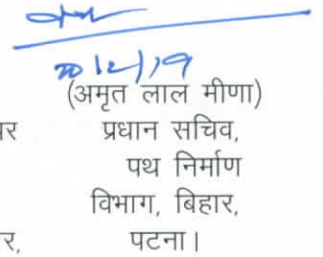 20/12/19
(अमृत लाल मीणा)
प्रधान सचिव,
पथ निर्माण
विभाग, बिहार,
र, पटना।